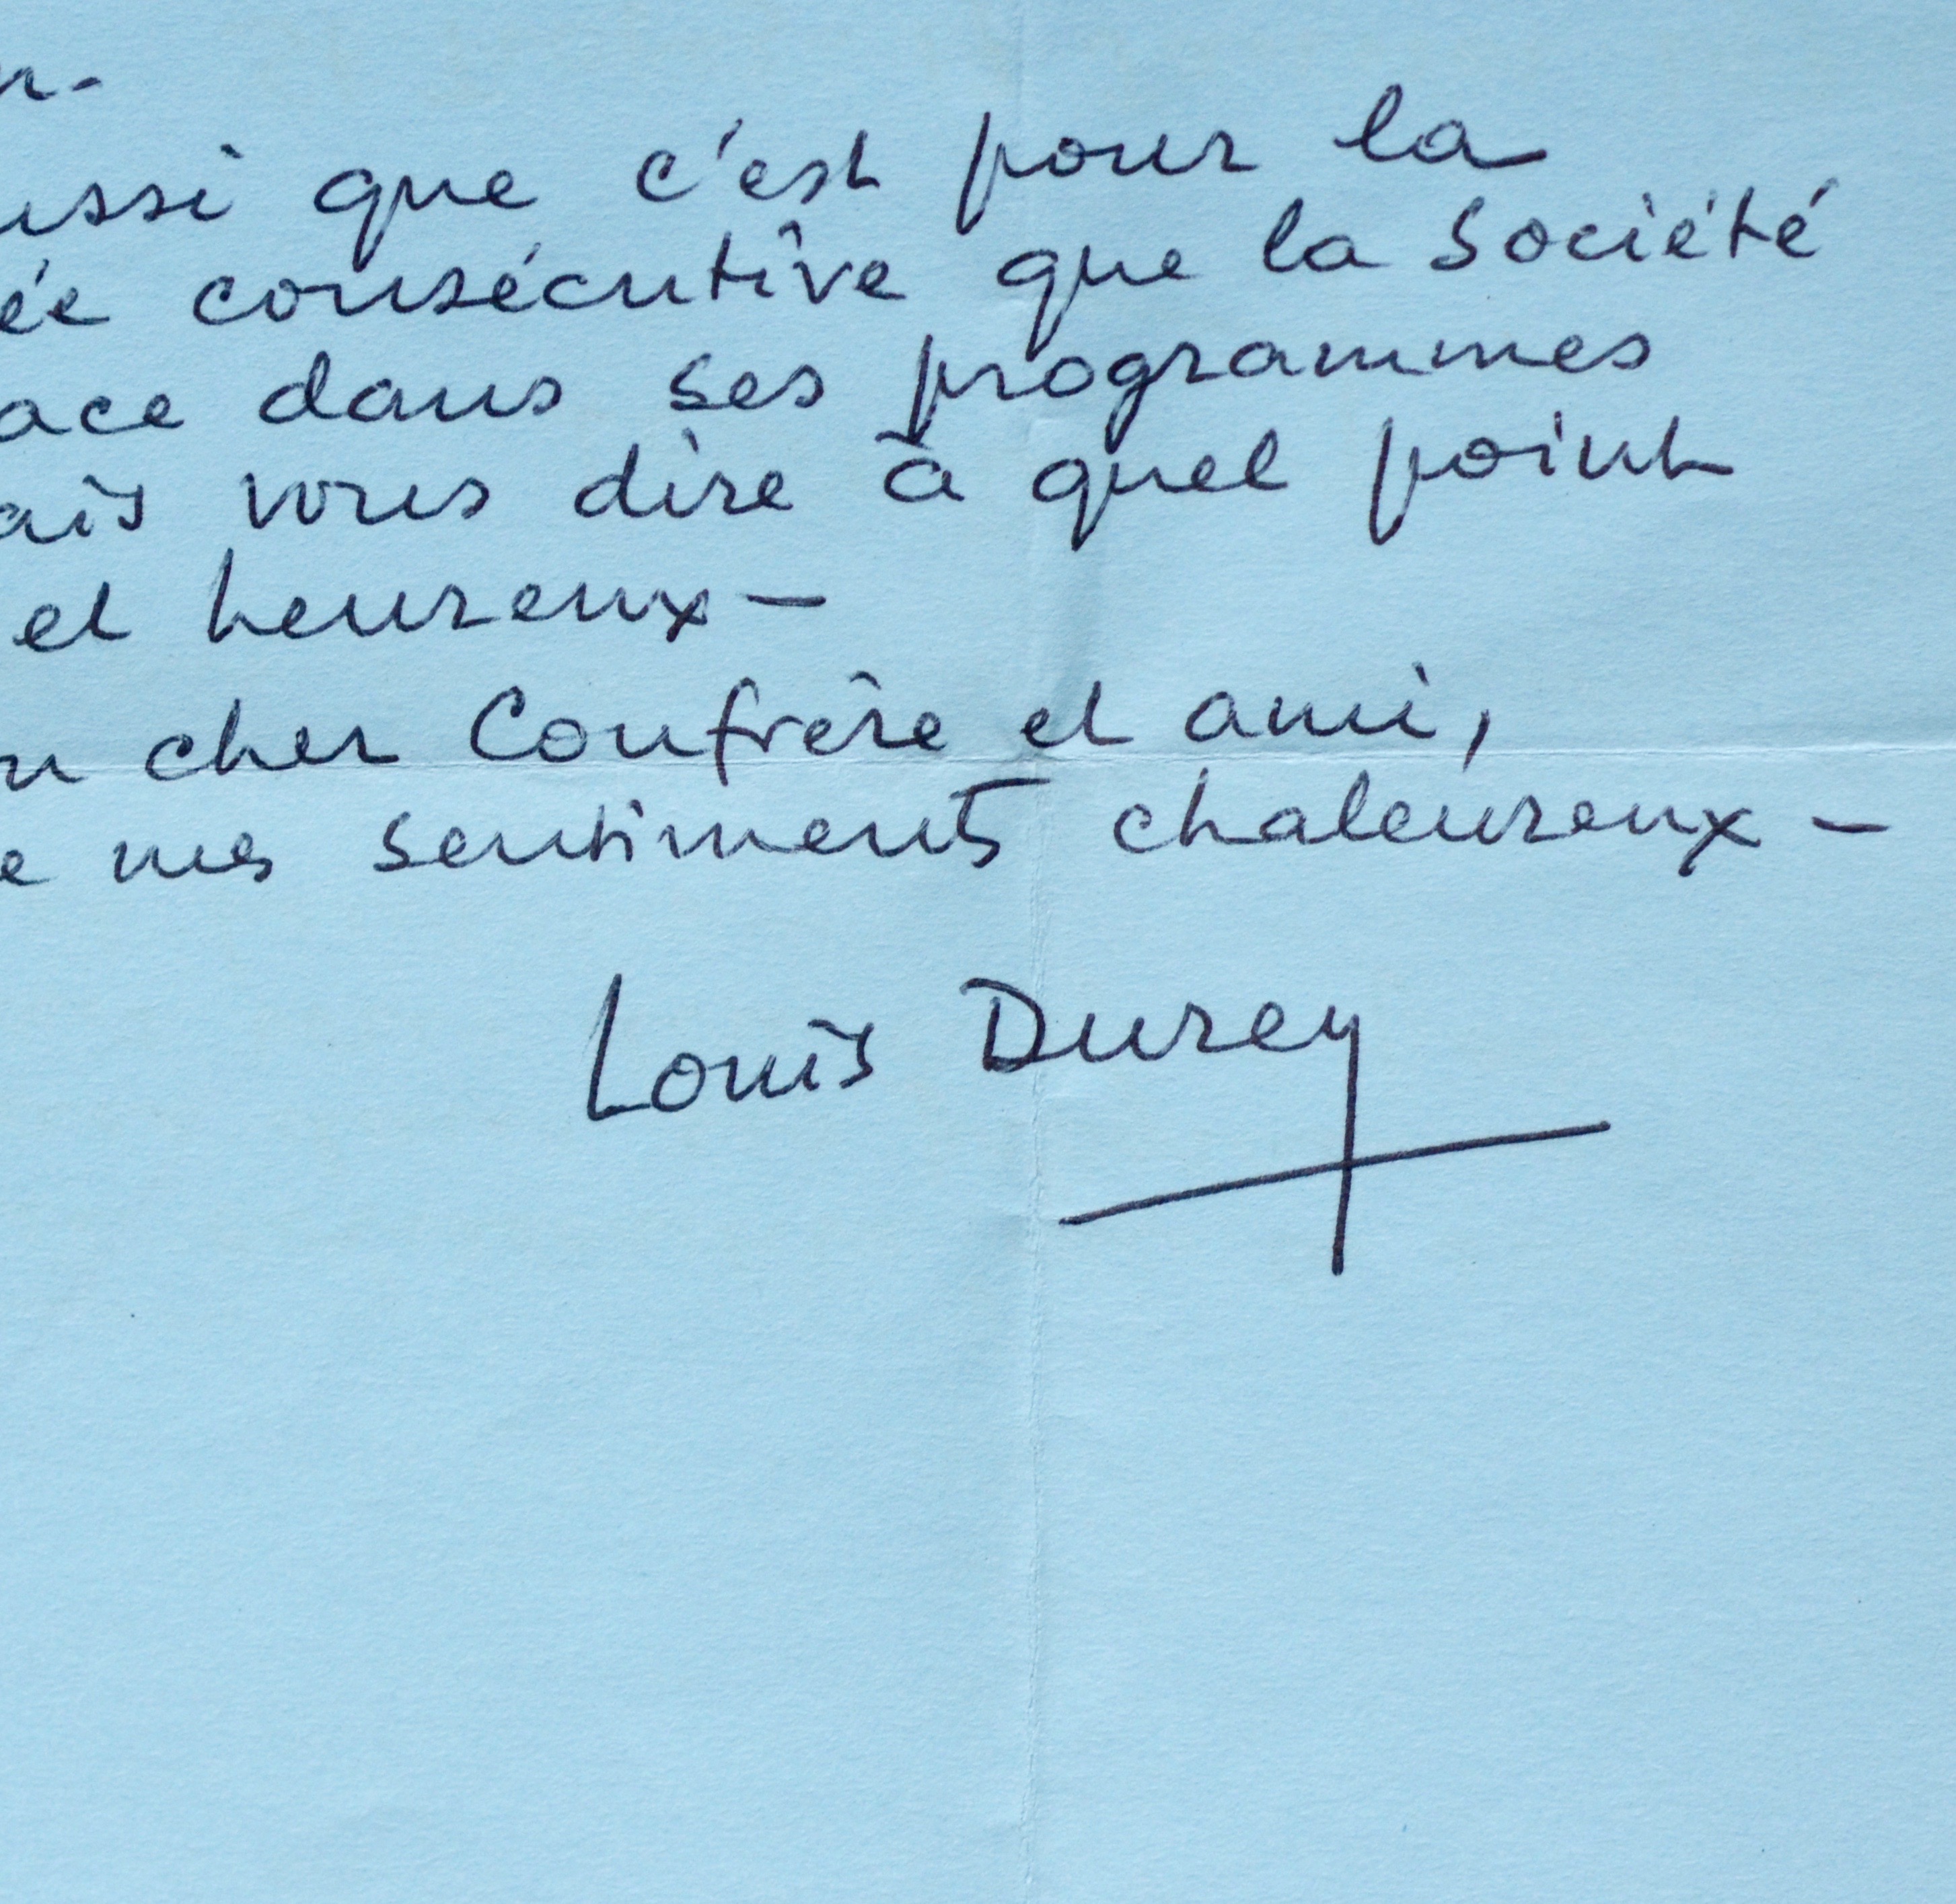 r.-
ussi que c'est pour la
ée consécutive que la Société
ace dans ses programmes
ais vous dire à quel point
et heureux —
n cher Confrère et ami,
e mes sentiments chaleureux —
Louis Durey